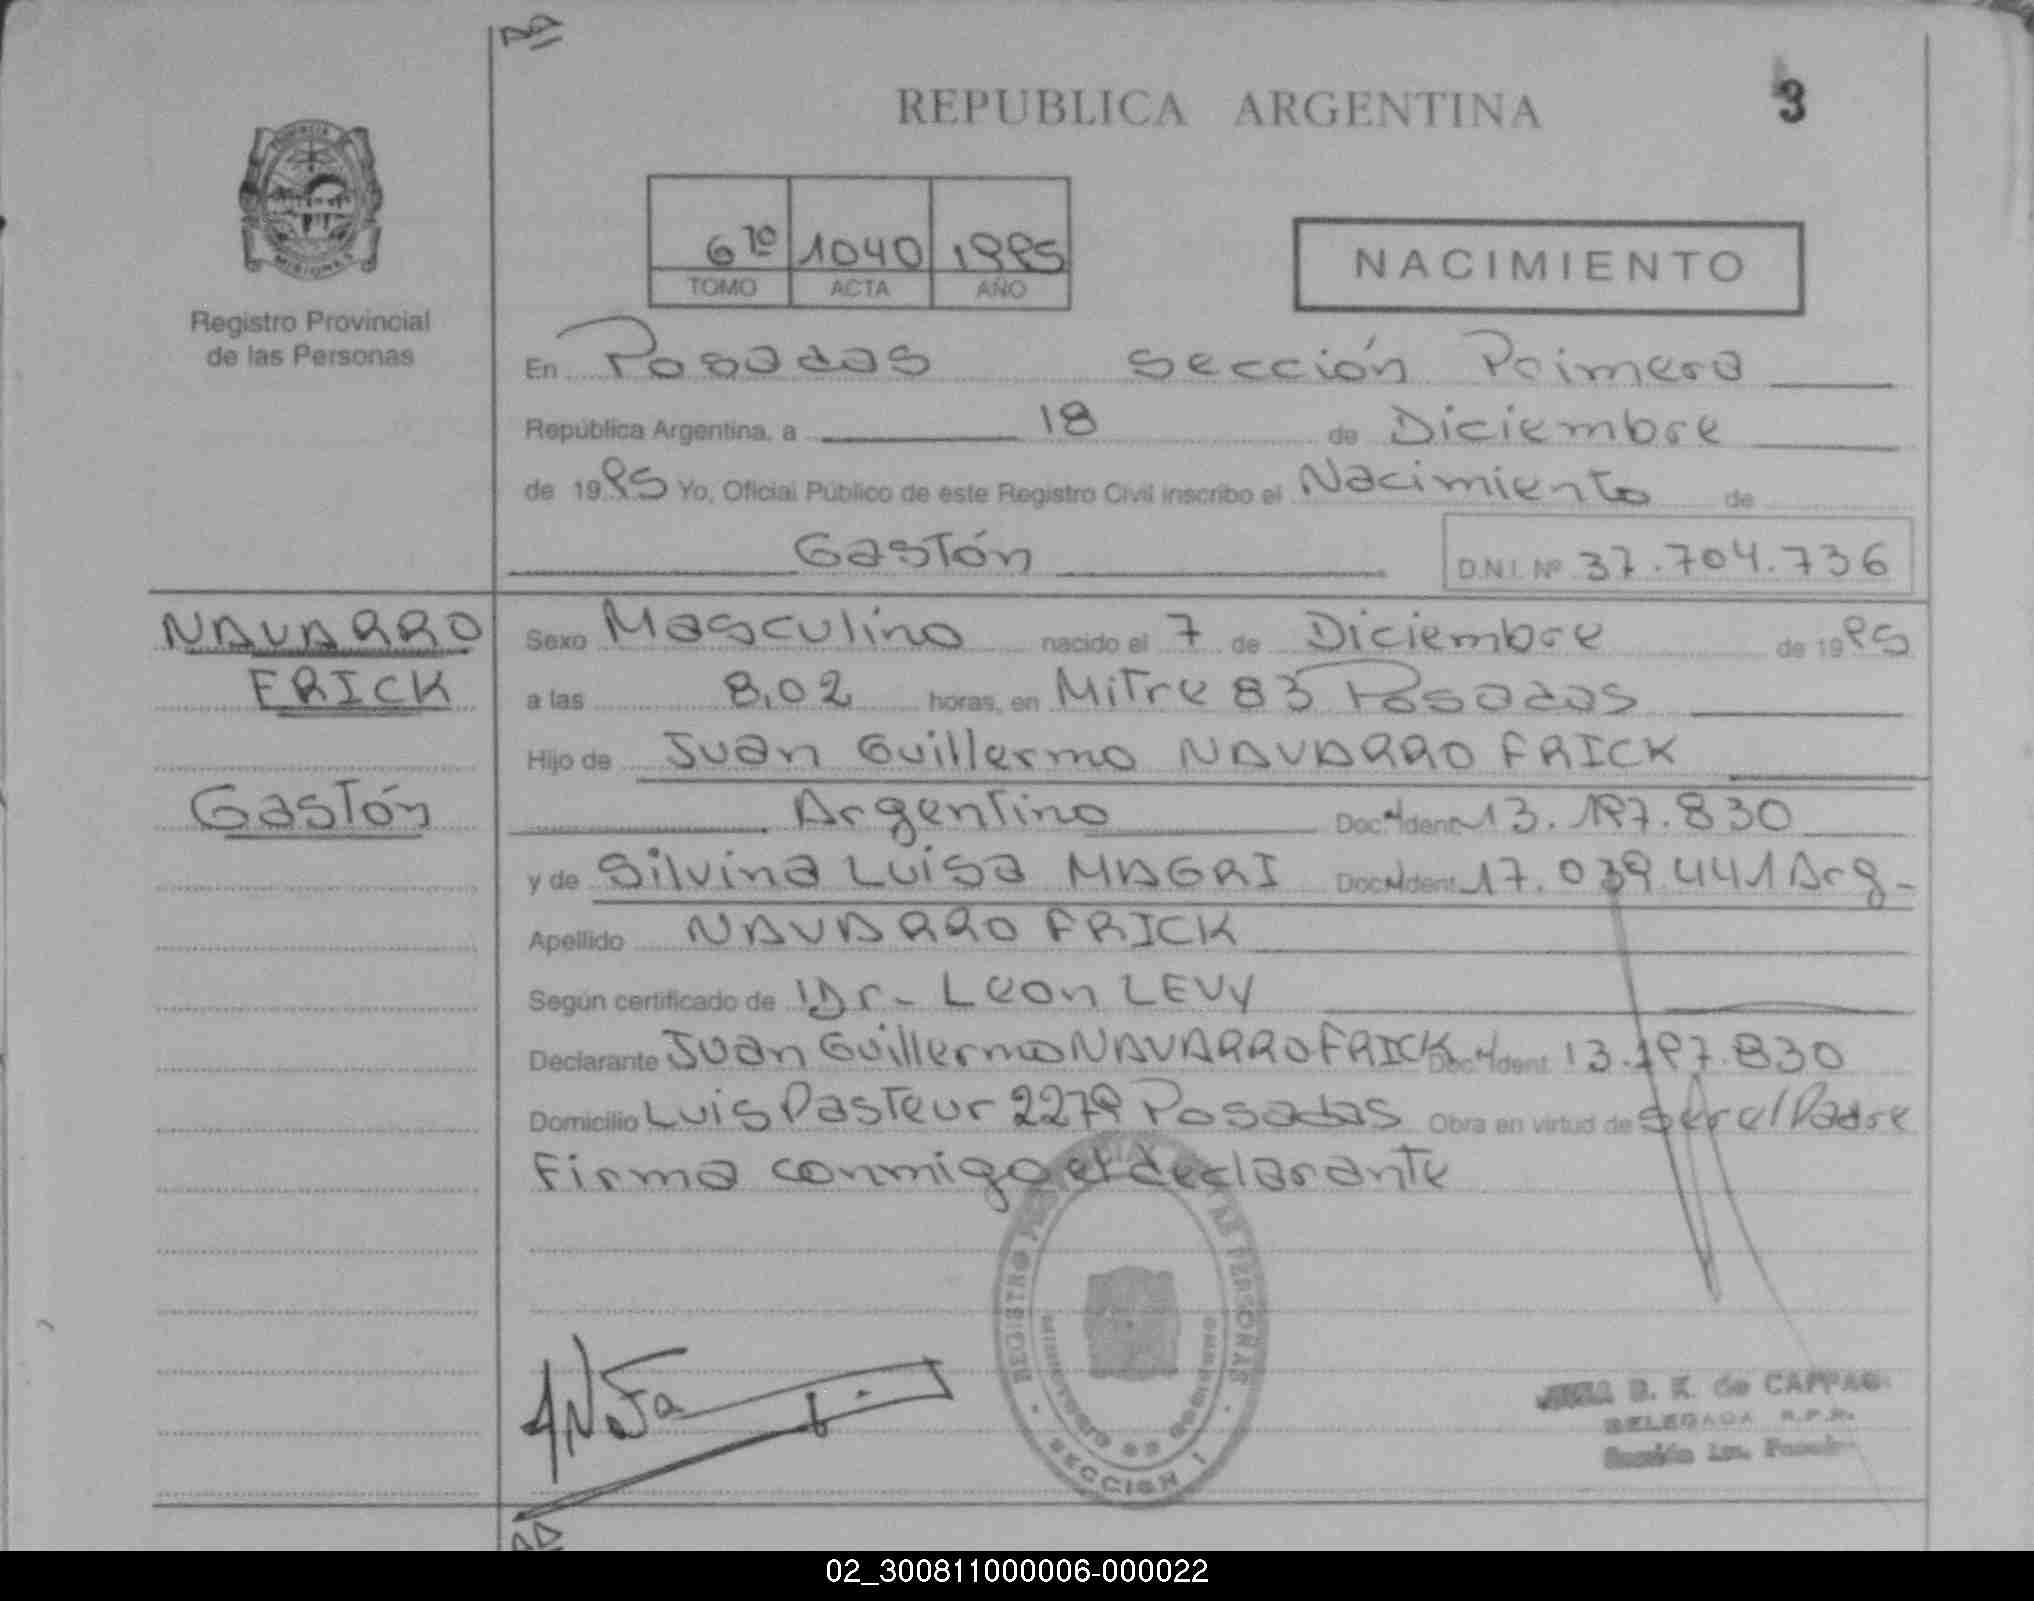 REPUBLICA ARGENTINA
3
6to 1040 1995
TOMO ACTA AÑO
NACIMIENTO
MISIONES
Registro Provincial
de las Personas
En Posadas Sección Primera
República Argentina, a 18 de Diciembre
de 1995 Yo, Oficial Público de este Registro Civil inscribo el Nacimiento de
Gastón D.N.I. Nº 37.704.736
NAVARRO
FRICK
Gastón
Sexo Masculino nacido el 7 de Diciembre de 1995
a las 8,02 horas, en Mitre 83 Posadas
Hijo de Juan Guillermo NAVARRO FRICK
Argentino Doc. Ident. 13.197.830
y de Silvina Luisa MAGRI Doc. Ident. 17.039.441 Arg-
Apellido NAVARRO FRICK
Según certificado de Dr- Leon LEVY
Declarante Juan Guillermo NAVARRO FRICK Doc. Ident. 13.197.830
Domicilio Luis Pasteur 2279 Posadas Obra en virtud de ser el Padre
Firma conmigo el declarante
REGISTRO DE LAS PERSONAS
MINISTERIO DE GOBIERNO
SECCION 1
B. K. de
DELEGADA R.P.P.
02_300811000006-000022